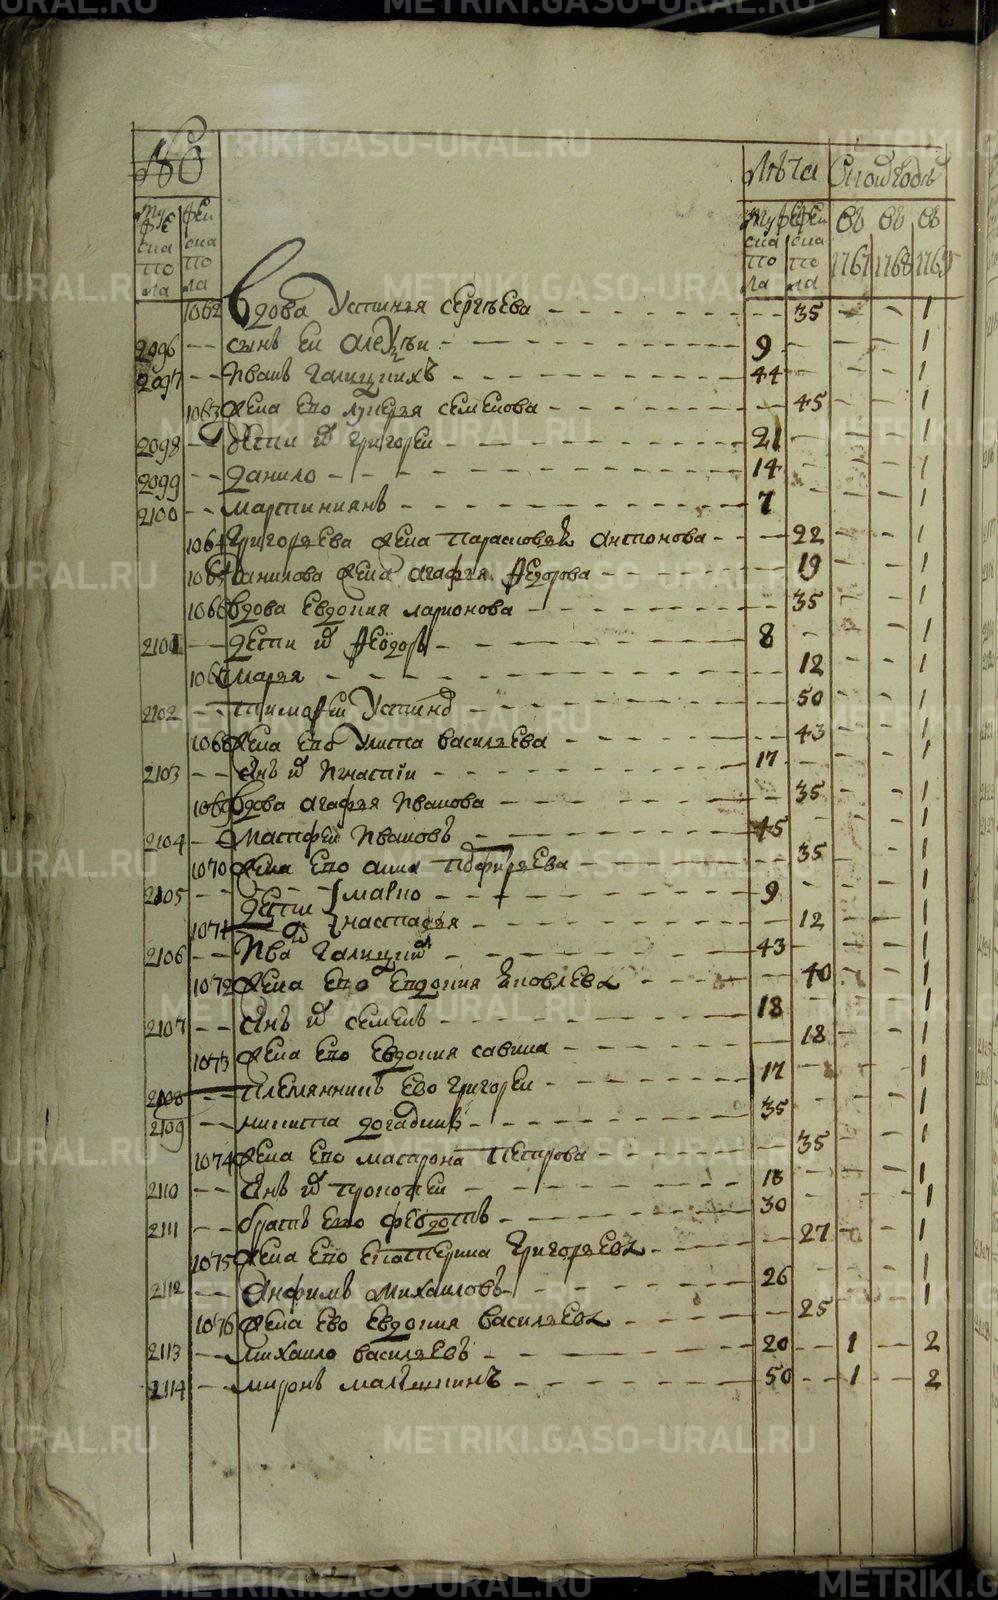 №
Лѣта
Му
же
ска
по
ла
Жен
ска
по
ла
Му
же
ска
по
ла
Жен
ска
по
ла
Въ 1767
Въ 1768
Въ 1769
1062 Вдова Устинья Сергѣева 35 1
2096 сынъ ей Алеѯѣи 9 1
2097 Иванъ Галицкихъ 44 1
1063 Жена ево Лукерья Семенова 45 1
2098 Дети их Григореи 21 1
2099 Данило 14 1
2100 Мартиниянъ 7 1
1064 Григорьева жена Парасковья Антонова 22 1
1065 Данилова жена Агафья Ѳедорова 19 1
1066 Вдова Евдокия Ларионова 35 1
2101 Дети их Ѳеодоръ 8 1
1067 Марья 12 1
2102 Тимоѳеи Устинов 50 1
1068 Жена ево Улита Васильева 43 1
2103 Снъ их Игнатiи 17 1
1069 Вдова Агафья Иванова 35 1
2104 Матѳеи Ивановъ 45 1
1070 Жена ево Анна Порфирьева 35 1
2105 Дети Марко 9 1
1071 их Настасья 12 1
2106 Иван Галицких 43 1
1072 Жена ево Евдокия Яковлева 40 1
2107 Снъ их Семенъ 18 1
1073 Жена ево Евдокия Савина 18 1
2108 Племянникъ ево Григореи 17 1
2109 Никита 35 1
1074 Жена ево Матрона Петрова 35 1
2110 Снъ их Прокопеи 18 1
2111 Братъ ево Федотъ 30 1
1075 Жена ево Екатерина Григорьева 27 1
2112 Анфимъ Михаиловъ 26 1
1076 Жена ево Евдокия Васильева 25 1
2113 Михаило Васильевъ 20 1 2
2114 Миронъ 50 1 2
METRIKI.GASO-URAL.RU